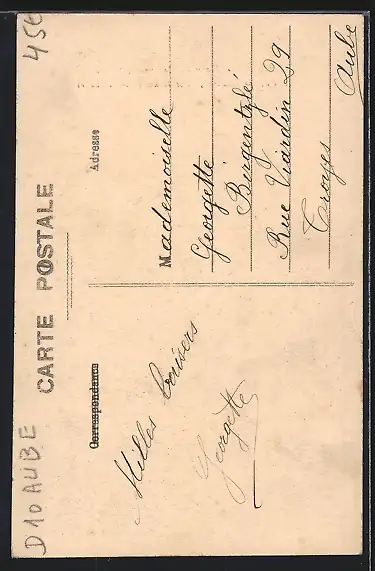 D10 AUBE
45€
CARTE POSTALE
Correspondance
Adresse
Milles baisers
Georgette
Mademoiselle
Georgette
Burgentzlé
Rue Viardin 29
Troyes
Aube